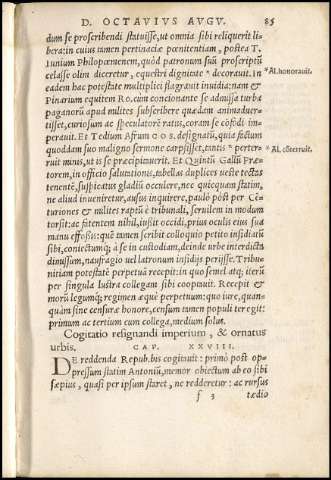 D. OCTAVIVS AVGV. 85
dum se proscribendi statuisse, ut omnia sibi reliquerit li
bera: in cuius tamen pertinaciæ pœnitentiam, postea T.
Iunium Philopœmenem, quòd patronum suũ proscriptũ
celasse olim diceretur, equestri dignitate * decorauit. In
* Al. honorauit.
eadem hac potestate multiplici flagrauit inuidia: nam &
Pinarium equitem Ro. cum concionante se admissa turba
paganorũ apud milites subscribere quædam animaduer-
tisset, curiosum ac speculatorẽ ratus, coram se cõfodi im
perauit. Et Tedium Afrum COS. designatũ, quia factum
quoddam suo maligno sermone carpsisset, tantis * perter-
* Al. cõterruit.
ruit minis, ut is se præcipitauerit. Et Quintũ Galliũ Præ
torem, in officio salutationis, tabellas duplices ueste tectas
tenentẽ, suspicatus gladiũ occulere, nec quicquam statim,
ne aliud inueniretur, ausus inquirere, paulò post per Cẽ-
turiones & milites raptũ è tribunali, seruilem in modum
torsit: ac fatentem nihil, iußit occidi, prius oculis eius sua
manu effoßis: quẽ tamen scribit colloquio petito insidiatũ
sibi, coniectumq; à se in custodiam, deinde urbe interdicta
dimissum, naufragio uel latronum insidijs perisse. Tribu-
nitiam potestatẽ perpetuã recepit: in quo semel atq; iterũ
per singula lustra collegam sibi cooptauit. Recepit &
morũ legumq; regimen æquè perpetuum: quo iure, quan
quàm sine censuræ honore, censum tamen populi ter egit:
primum ac tertium cum collega, medium solus.
Cogitatio resignandi imperium, & ornatus
urbis. CAP. XXVIII.
DE reddenda Repub. bis cogitauit: primò post op-
pressum statim Antoniũ, memor obiectum ab eo sibi
sæpius, quasi per ipsum staret, ne redderetur: ac rursus
f 3 tædio